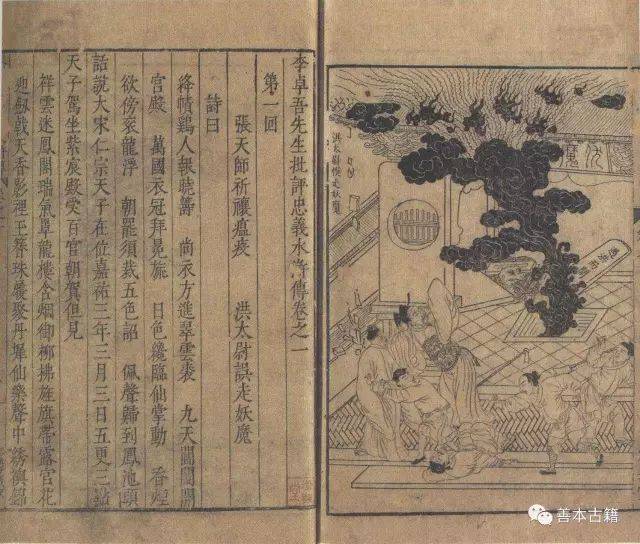 伏魔
洪太尉悞走妖魔
李卓吾先生批評忠義水滸傳卷之一
第一回
張天師祈禳瘟疫 洪太尉誤走妖魔
詩曰
絳幘鷄人報曉籌 尚衣方進翠雲裘 九天閶闔開
宮殿 萬國衣冠拜冕旒 日色纔臨仙掌動 香煙
欲傍衮龍浮 朝罷須裁五色詔 佩聲歸到鳳池頭
話說大宋仁宗天子在位嘉祐三年三月三日五更三點
天子駕坐紫宸殿受百官朝賀但見
祥雲迷鳳閣瑞氣罩龍樓含烟御柳拂旌旗帶露宮花
迎劍戟天香影裡玉簪珠履聚丹墀仙樂聲中繡襖錦
善本古籍